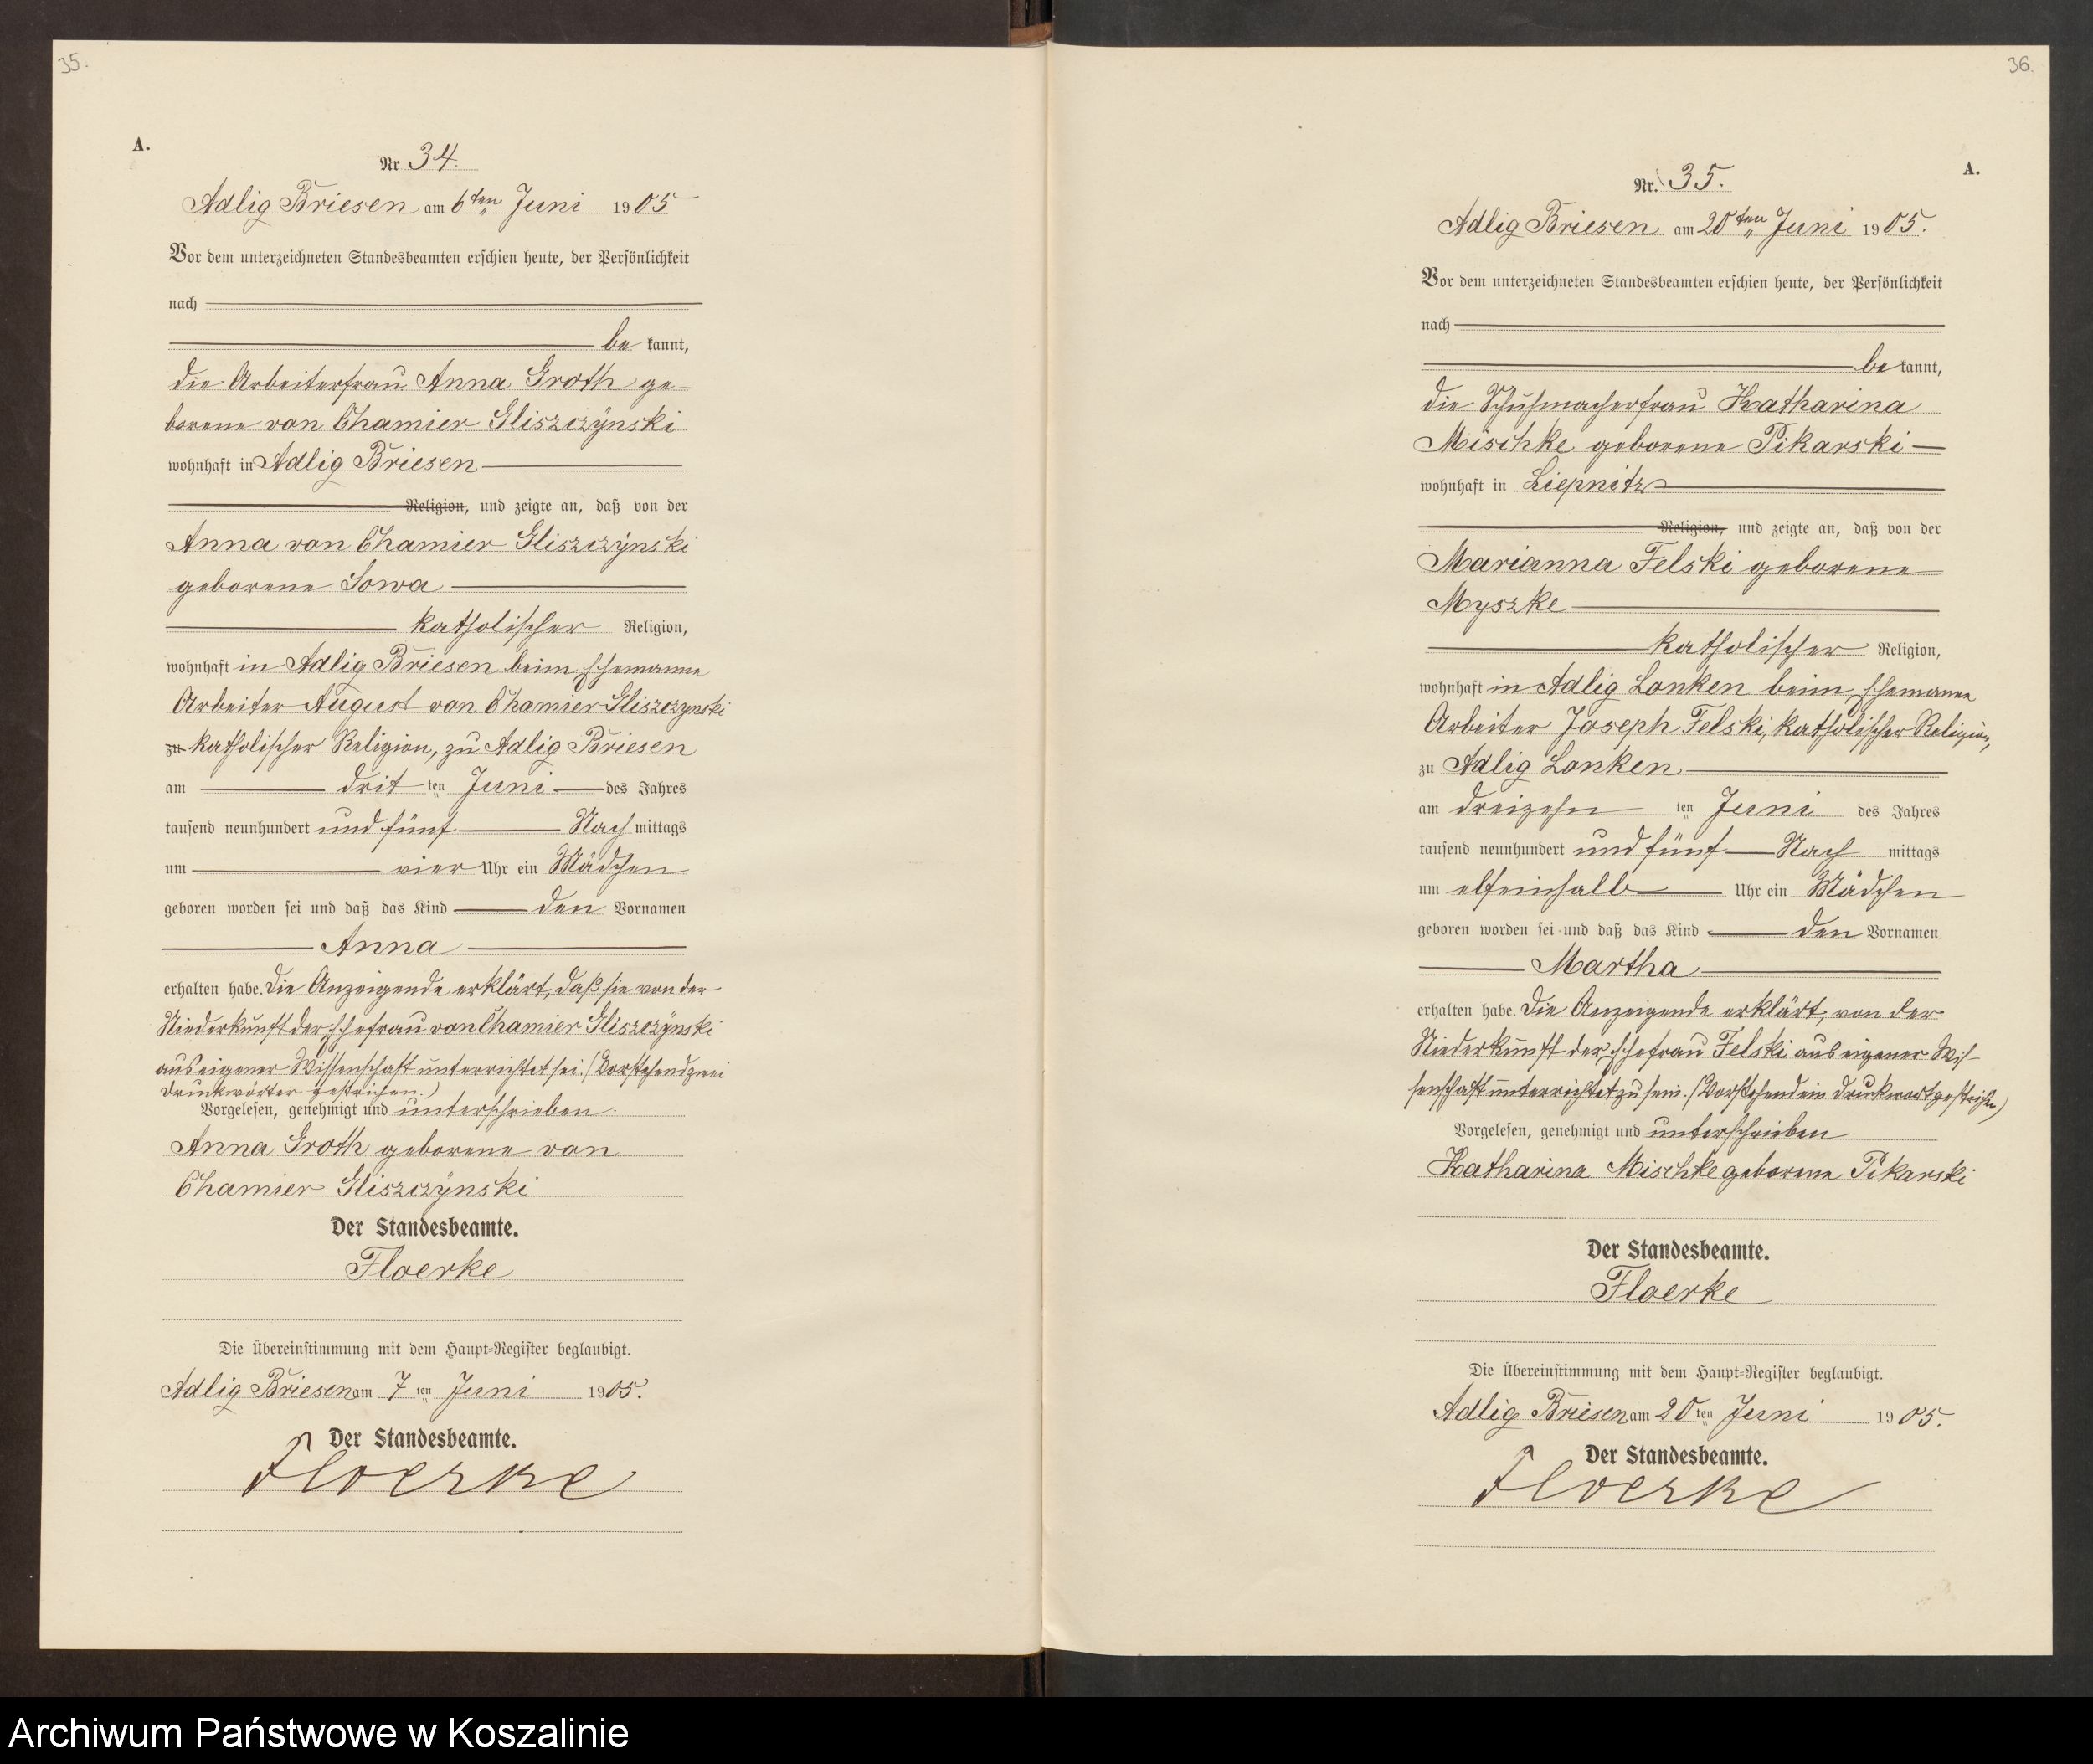 35.
A.
Nr 34.
Adlig Briesen am 6ten Juni 1905
Vor dem unterzeichneten Standesbeamten erschien heute, der Persönlichkeit
nach
be kannt,
die Arbeiterfrau Anna Groth ge-
borene von Chamier Gliszczÿnski
wohnhaft in Adlig Briesen
Religion, und zeigte an, daß von der
Anna von Chamier Gliszczÿnski
geborene Sowa
katholischer Religion,
wohnhaft in Adlig Briesen beim Ehemanne
Arbeiter August von Chamier Gliszczynski
zu katholischer Religion, zu Adlig Briesen
am drit ten Juni des Jahres
tausend neunhundert und fünf Nach mittags
um vier Uhr ein Mädchen
geboren worden sei und daß das Kind den Vornamen
Anna
erhalten habe. Die Anzeigende erklärt, daß sie von der
Niederkunft der Ehefrau von Chamier Gliszczÿnski
aus eigener Wissenschaft unterrichtet sei. (Vorstehend zwei
Druckwörter gestrichen.)
Vorgelesen, genehmigt und unterschrieben.
Anna Groth geborene von
Chamier Gliszczÿnski
Der Standesbeamte.
Floerke
Die Übereinstimmung mit dem Haupt-Register beglaubigt.
Adlig Briesen am 7 ten Juni 1905.
Der Standesbeamte.
Floerke
36.
A.
Nr. 35.
Adlig Briesen am 20ten Juni 1905.
Vor dem unterzeichneten Standesbeamten erschien heute, der Persönlichkeit
nach
be kannt,
die Schuhmacherfrau Katharina
Mischke geborene Pikarski
wohnhaft in Liepnitz
Religion, und zeigte an, daß von der
Marianna Felski geborene
Myszke
katholischer Religion,
wohnhaft in Adlig Lonken beim Ehemanne
Arbeiter Joseph Felski, katholischer Religion,
zu Adlig Lonken
am dreizehn ten Juni des Jahres
tausend neunhundert und fünf Nach mittags
um elfeinhalb Uhr ein Mädchen
geboren worden sei und daß das Kind den Vornamen
Martha
erhalten habe. Die Anzeigende erklärt, von der
Niederkunft der Ehefrau Felski aus eigener Wis-
senschaft unterrichtet zu sein. (Vorstehend ein Druckwort gestrichen)
Vorgelesen, genehmigt und unterschrieben
Katharina Mischke geborene Pikarski
Der Standesbeamte.
Floerke
Die Übereinstimmung mit dem Haupt-Register beglaubigt.
Adlig Briesen am 20 ten Juni 1905.
Der Standesbeamte.
Floerke
Archiwum Państwowe w Koszalinie